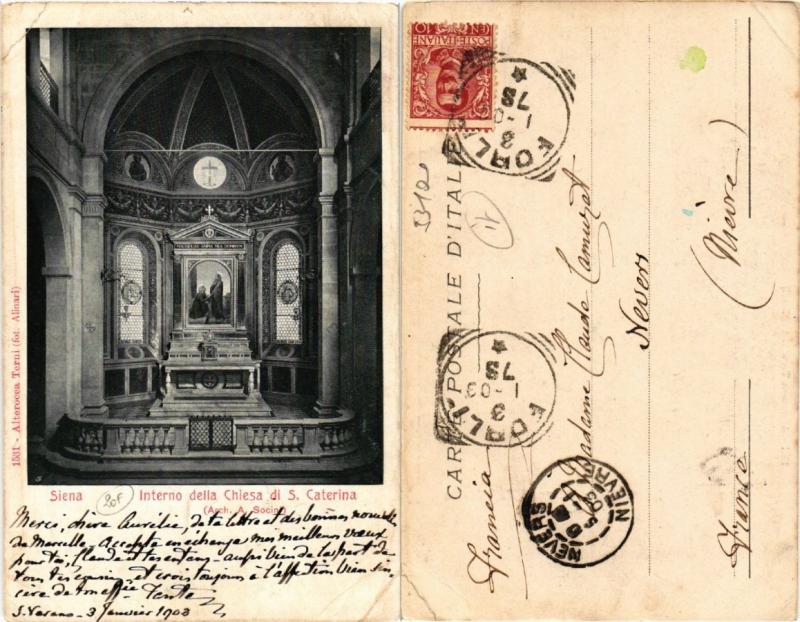 1531 - Alterocca Terni (fot. Alinari)
Siena
20F
Interno della Chiesa di S. Caterina
(Arch. A. Socini)
Merci, chère Aurélie, de ta lettre et des bonnes nouvelles
de Marcelle. Accepte en échange mes meilleurs vœux
pour toi, Claude et tes enfants aussi bien de la part de
tous tes cousins et crois toujours à l'affection bien sin
cère de ta
S. Varano - 3 Janvier 1903
POSTE ITALIANE
CENT. 10
FORLI
3
1-03
7S
CARTE POSTALE D'ITALIE
FORLI
3
1-03
7S
NEVERS
NIÈVRE
Madame Claude Camuzat
Nevers
(Nièvre)
Francia
France